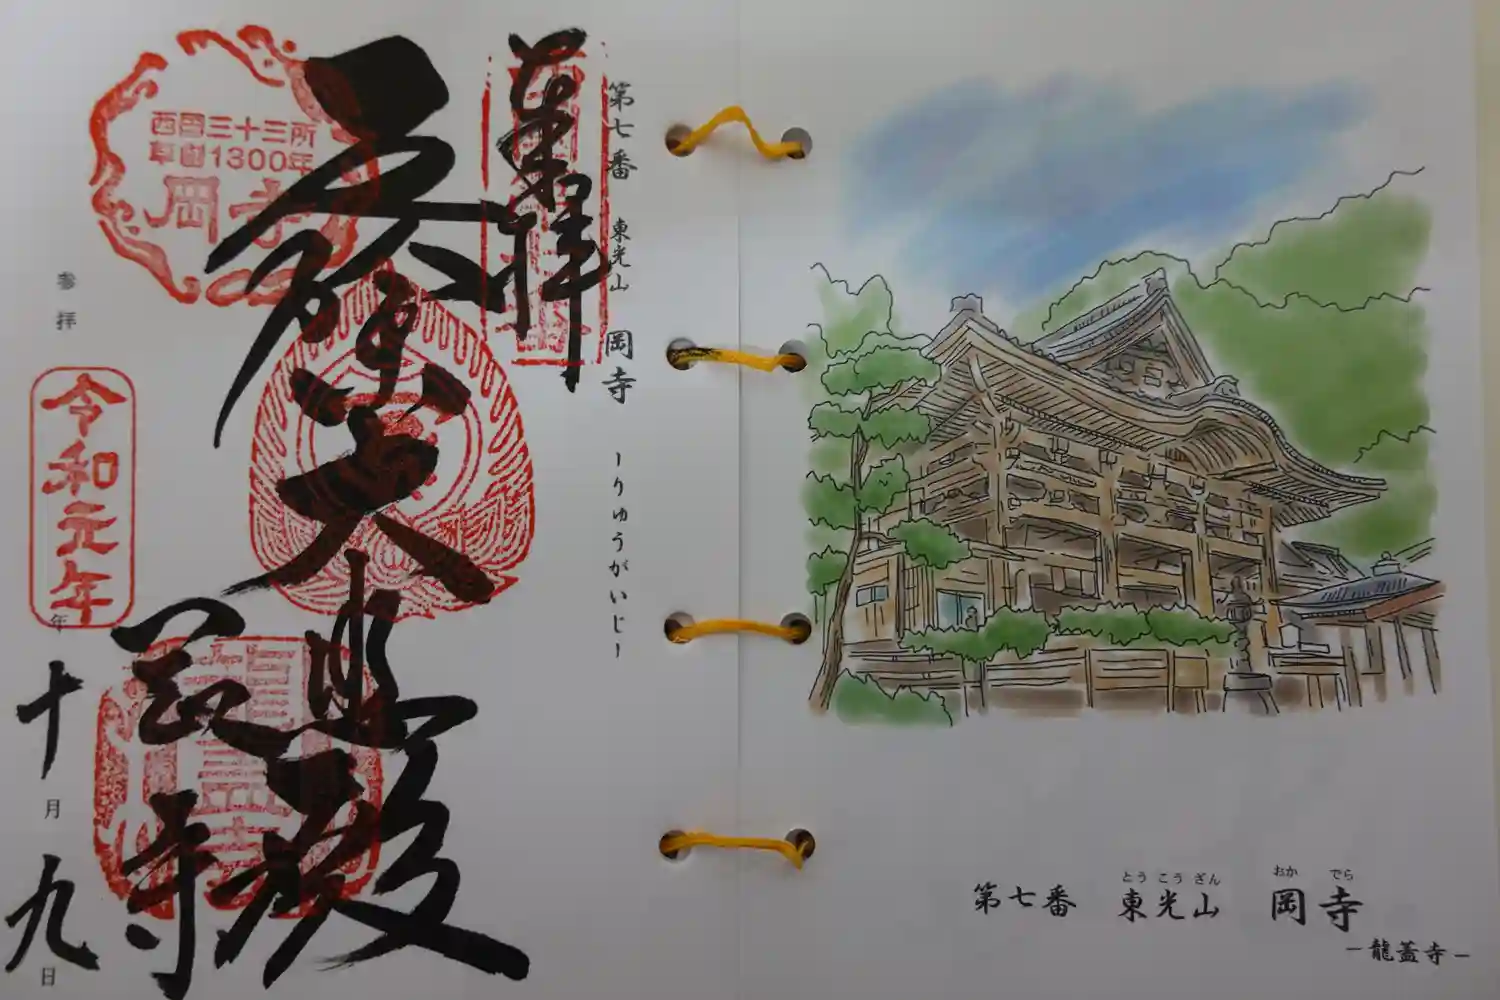 奉拝
第七番 東光山 岡寺 ーりゅうがいじー
西国三十三所
草創1300年
岡寺
厄除大悲殿
岡寺
参拝
令和元年
年
十月九日
第七番 東光山 岡寺
とうこうざん おかでら
ー龍蓋寺ー